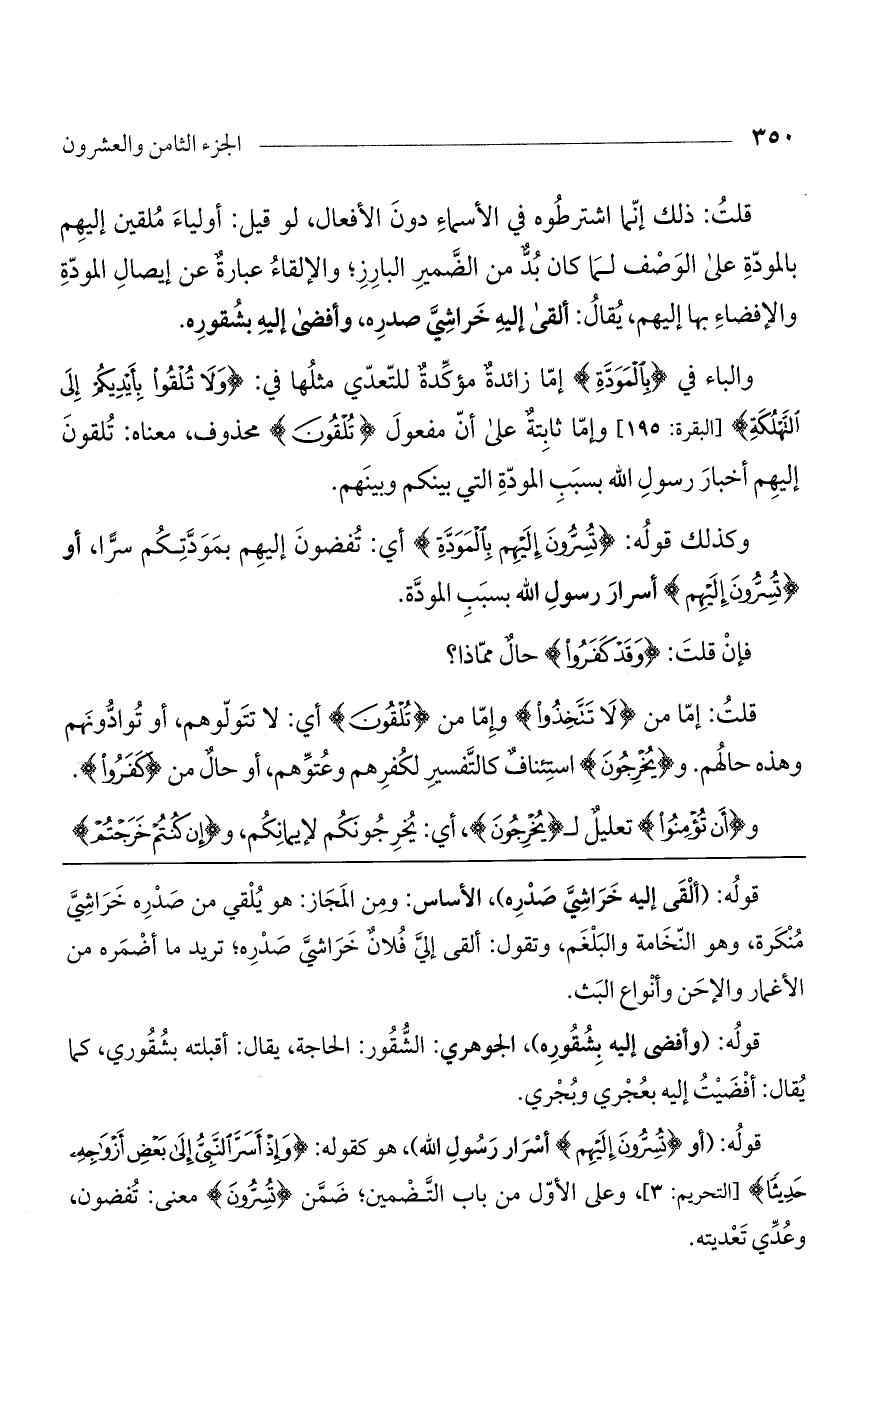 ٣٥٠ الجزء الثامن والعشرون
قلتُ: ذلك إنّما اشترطُوه في الأسماءِ دونَ الأفعال، لو قيل: أولياءَ مُلقين إليهِم
بالمودّةِ علىٰ الوَصْف لـمَا كان بُدٌّ من الضَّميرِ البارِزِ؛ والإلقاءُ عبارةٌ عن إيصالِ المودّةِ
والإفضاءِ بها إليهم، يُقالُ: ألقىٰ إليهِ خَراشِيَّ صدرِه، وأفضىٰ إليهِ بشُقورِه.
والباء في ﴿بِٱلْمَوَدَّةِ﴾ إمّا زائدةٌ مؤكِّدةٌ للتّعدّي مثلُها في: ﴿وَلَا تُلْقُوا۟ بِأَيْدِيكُمْ إِلَى
ٱلتَّهْلُكَةِ﴾ [البقرة: ١٩٥] وإمّا ثابِتةٌ علىٰ أنّ مفعولَ ﴿تُلْقُونَ﴾ محذوف، معناه: تُلقونَ
إليهِم أخبارَ رسولِ الله بسبَبِ المودّةِ التي بينَكم وبينَهم.
وكذلك قولُه: ﴿تُسِرُّونَ إِلَيْهِم بِٱلْمَوَدَّةِ﴾ أي: تُفضونَ إليهِم بمَوَدَّتِـكُم سرًّا، أو
﴿تُسِرُّونَ إِلَيْهِم﴾ أسرارَ رسولِ الله بسبَبِ المودَّة.
فإنْ قلتَ: ﴿وَقَدْ كَفَرُوا۟﴾ حالٌ ممّاذا؟
قلتُ: إمّا من ﴿لَا تَتَّخِذُوا۟﴾ وإمّا من ﴿تُلْقُونَ﴾ أي: لا تتَولّوهم، أو تُوادُّونَهم
وهذه حالُهم. و﴿يُخْرِجُونَ﴾ استِئنافٌ كالتَّفسيرِ لكُفرِهم وعُتوِّهم، أو حالٌ من ﴿كَفَرُوا۟﴾.
و﴿أَن تُؤْمِنُوا۟﴾ تعليلٌ لـ﴿يُخْرِجُونَ﴾، أي: يُخرِجُونَكُم لإيمانِكُم، و﴿إِن كُنتُمْ خَرَجْتُمْ﴾
قولُه: (ألْقَى إليه خَرَاشِيَّ صَدْرِه)، الأساس: ومِن المَجَاز: هو يُلْقي من صَدْرِه خَرَاشِيَّ
مُنْكَرة، وهو النّخَامة والبَلْغَم، وتقول: ألقى إليَّ فُلانٌ خَرَاشيَّ صَدْرِه؛ تريد ما أضْمَره من
الأغمار والإحَن وأنْواع البَث.
قولُه: (وأفضى إليه بِشُقُورِه)، الجوهري: الشُّقُور: الحاجة، يقال: أقبلته بشُقُوري، كما
يُقال: أفْضَيْتُ إليه بعُجْري وبُجْري.
قولُه: (أو ﴿تُسِرُّونَ إِلَيْهِم﴾ أسْرَار رَسُولِ الله)، هو كقوله: ﴿وَإِذْ أَسَرَّ ٱلنَّبِيُّ إِلَىٰ بَعْضِ أَزْوَٰجِهِۦ
حَدِيثًا﴾ [التحريم: ٣]، وعلى الأوّل من باب التَّـضْمين؛ ضَمَّن ﴿تُسِرُّونَ﴾ معنى: تُفضون،
وعُدِّي تَعْديته.